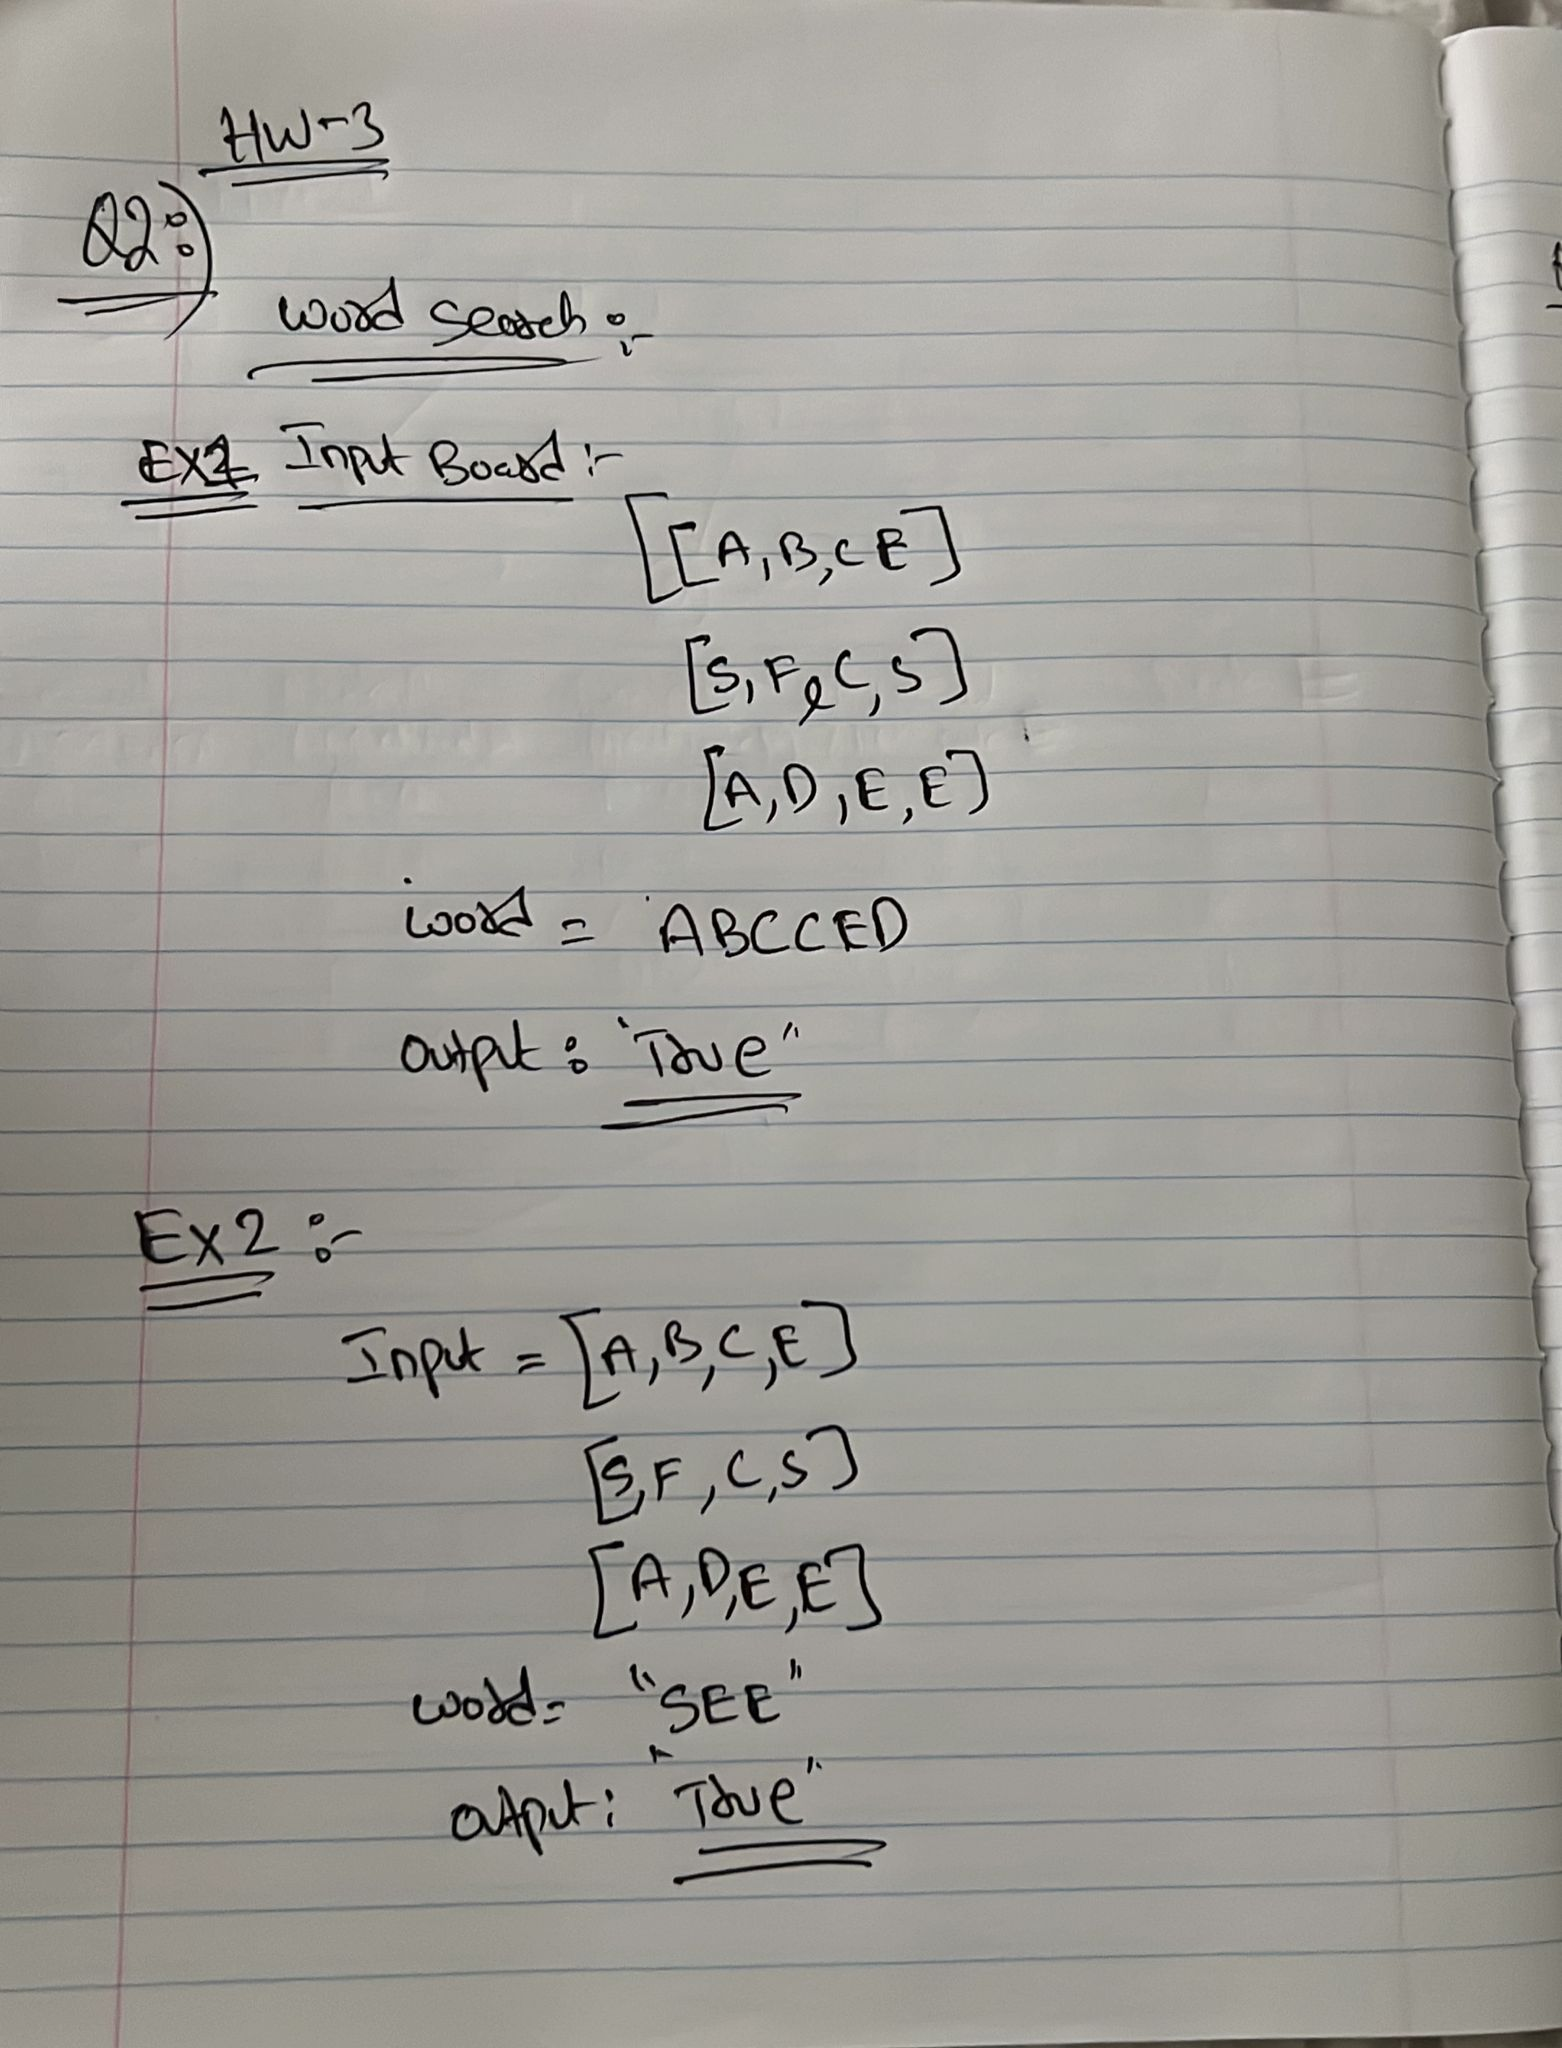 HW-3
Q2:)
Word Search :-
EX1 Input Board :-
[[A,B,C E]
[S,F,C,S]
[A,D,E,E]
word = ABCCED
output : "True"
EX2 :-
Input = [A,B,C,E]
[S,F,C,S]
[A,D,E,E]
word = "SEE"
output : "True"